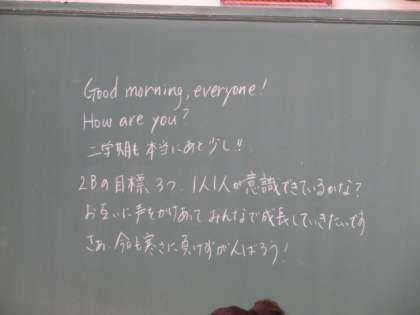 Good morning, everyone!
How are you?
二学期も本当にあと少し!!
2Bの目標3つ、1人1人が意識できているかな?
お互いに声をかけあってみんなで成長していきたいです
さあ、今日も寒さに負けずがんばろう!